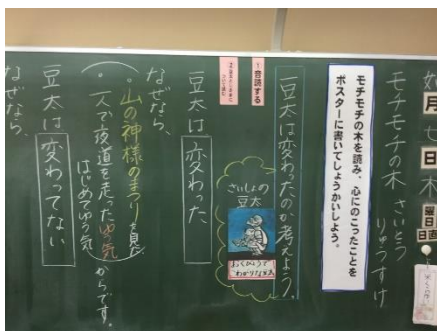 月
日
木
曜日
日直
モチモチの木 さいとう
りゅうすけ
モチモチの木を読み、心にのこったことを
ポスターに書いてしょうかいしよう。
豆太は変わったのか考えよう。
①音読する
さいしょの
豆太
おくびょうで
豆太は変わった
なぜなら、
・山の神様のまつりを見た
・一人で夜道を走ったゆう気
はじめてゆう気
からです。
豆太は変わってない
なぜなら、